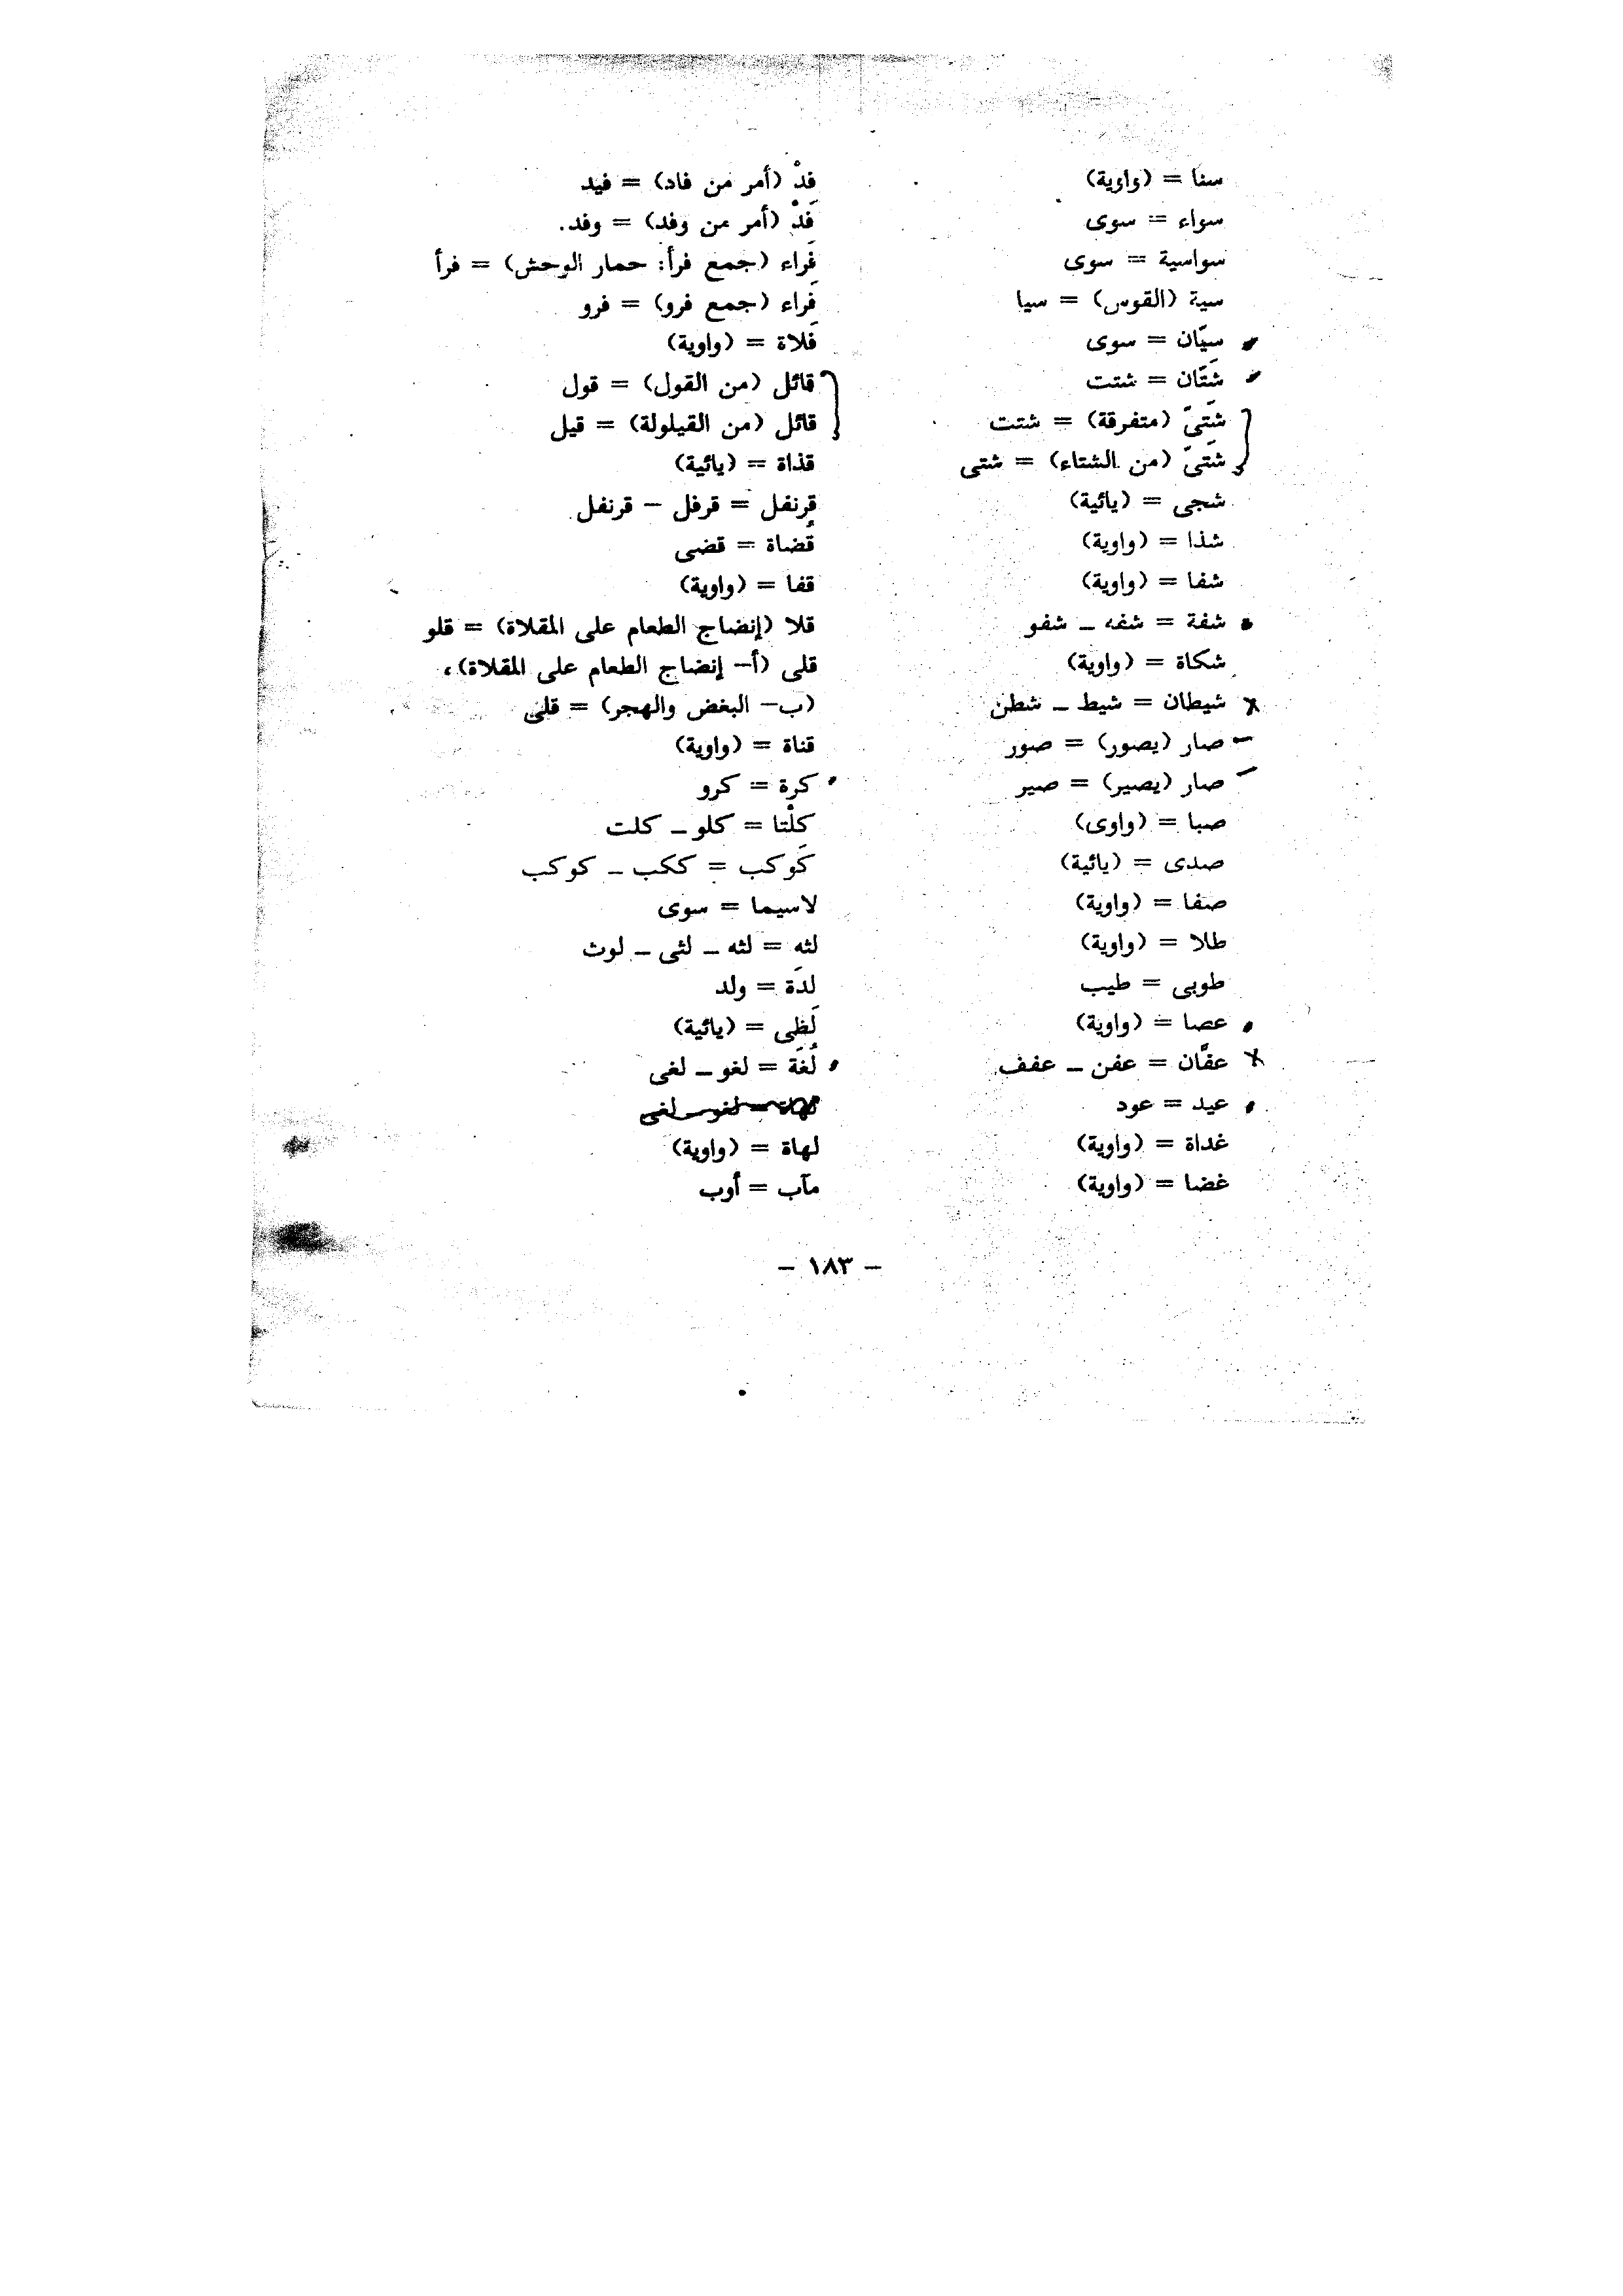 سنا = (واوية)
سواء = سوى
سواسية = سوى
سية (القوس) = سيا
سيّان = سوى
شَتّان = شتت
شَتىّ (متفرقة) = شتت
شَتىّ (من الشتاء) = شتى
شجى = (يائية)
شذا = (واوية)
شفا = (واوية)
شفة = شفه ــ شفو
شكاة = (واوية)
شيطان = شيط ــ شطن
صار (يصور) = صور
صار (يصير) = صير
صبا = (واوى)
صدى = (يائية)
صفا = (واوية)
طلا = (واوية)
طوبى = طيب
عصا = (واوية)
عفّان = عفن ــ عفف
عيد = عود
غداة = (واوية)
غضا = (واوية)
فدْ (أمر من فاد) = فيد
فِدْ (أمر من وفد) = وفد.
فَراء (جمع فرأ: حمار الوحش) = فرأ
فِراء (جمع فرو) = فرو
فَلاة = (واوية)
قائل (من القول) = قول
قائل (من القيلولة) = قيل
قذاة = (يائية)
قرنفل = قرفل – قرنفل
قُضاة = قضى
قفا = (واوية)
قلا (إنضاج الطعام على المقلاة) = قلو
قلى (أ– إنضاج الطعام على المقلاة)،
(ب– البغض والهجر) = قلى
قناة = (واوية)
كرة = كرو
كلْتا = كلو ــ كلت
كَوكب = ككب ــ كوكب
لاسيما = سوى
لثه = لثه ــ لثى ــ لوث
لدَة = ولد
لَظى = (يائية)
لُغَة = لغو ــ لغى
لهاة = لغو ــ لغى
لهاة = (واوية)
مآب = أوب
– ١٨٣ –